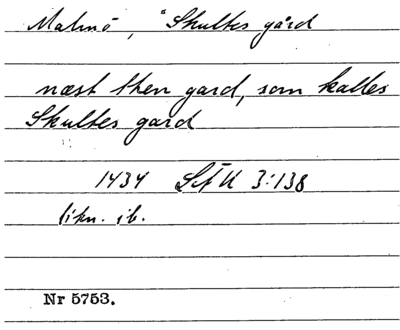 Malmö, *Skultes gård
næst then gard, som kalles
Skultes gard
1434 StÄU 3:138
likn. ib.
Nr 5753.